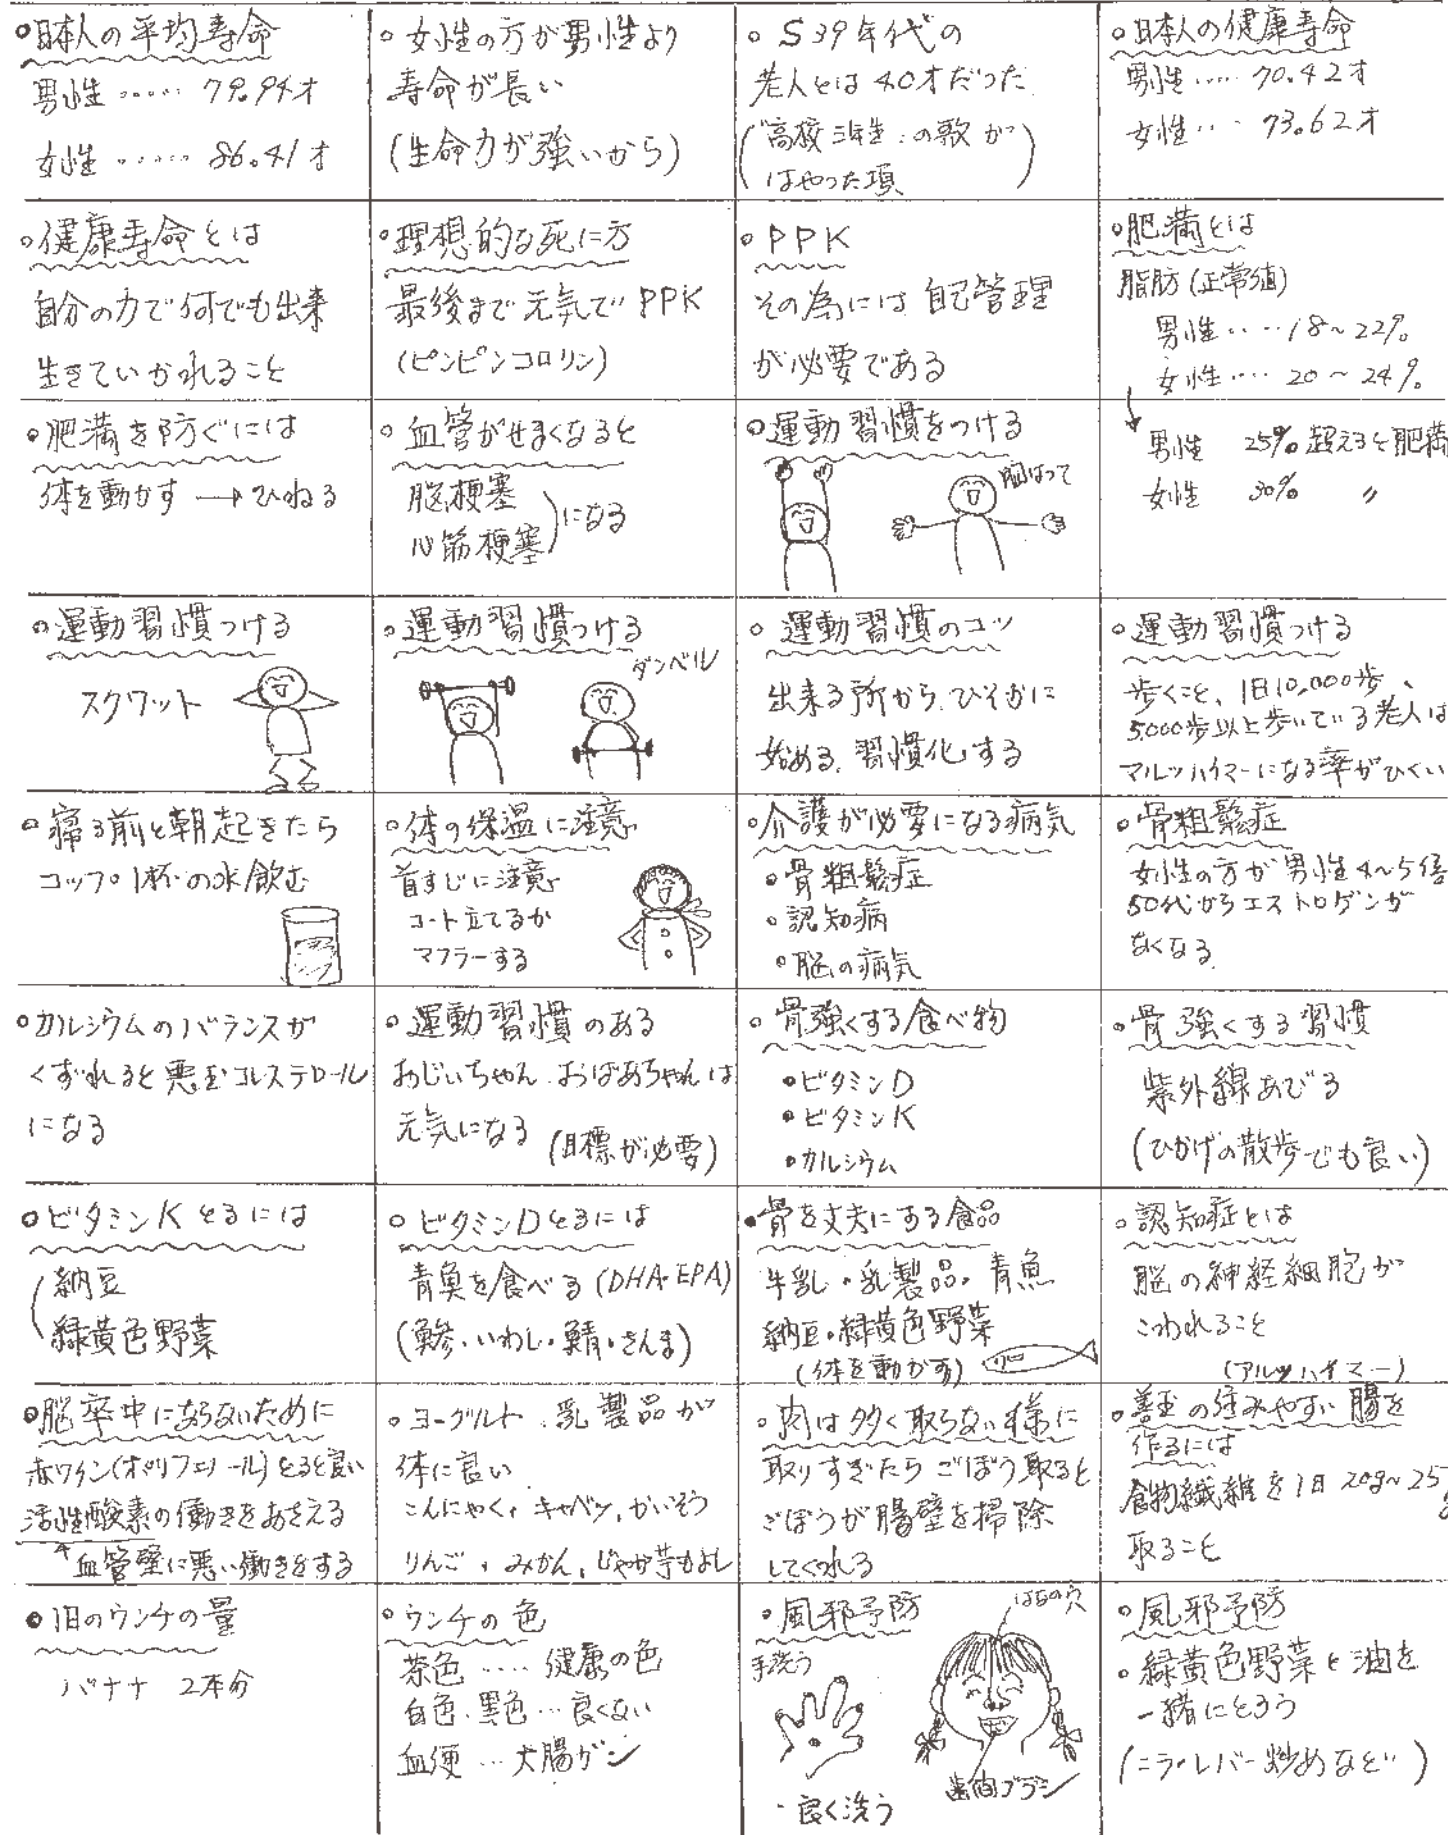 日本人の平均寿命
男性・・・・・ 79.94才
女性・・・・・ 86.41才
女性の方が男性より
寿命が長い
(生命力が強いから)
S39年代の
老人とは40才だった
(“高校三年生”の歌が
はやった項)
日本人の健康寿命
男性・・・・ 70.42才
女性・・・ 73.62才
健康寿命とは
自分の力で何でも出来
生きていかれること
理想的な死に方
最後まで元気で PPK
(ピンピンコロリン)
PPK
その為には 自己管理
が必要である
肥満とは
脂肪(正常値)
男性・・・・18~22%
女性・・・・20~24%
男性 25%超えると肥満
女性 30% 〃
肥満を防ぐには
体を動かす → ひねる
血管がせまくなると
脳梗塞
心筋梗塞)になる
運動習慣をつける
胸はって
運動習慣つける
スクワット
運動習慣つける
ダンベル
運動習慣のコツ
出来る所から、ひそかに
始める、習慣化する
運動習慣つける
歩くこと、1日10,000歩、
5,000歩以上歩いている老人は
アルツハイマーになる率がひくい
寝る前と朝起きたら
コップ1杯の水飲む
体の保温に注意
首すじに注意
コート立てるか
マフラーする
介護が必要になる病気
・骨粗鬆症
・認知病
・脳の病気
骨粗鬆症
女性の方が男性4~5倍
50代からエストロゲンが
なくなる。
カルシウムのバランスが
くずれると悪玉コレステロール
になる
運動習慣のある
おじいちゃん、おばあちゃんは
元気になる (目標が必要)
骨強くする食べ物
・ビタミンD
・ビタミンK
・カルシウム
骨強くする習慣
紫外線あびる
(ひかげの散歩でも良い)
ビタミンKとるには
(納豆
緑黄色野菜
ビタミンDとるには
青魚を食べる(DHA・EPA)
(鯵・いわし・鯖・さんま)
骨を丈夫にする食品
牛乳・乳製品・青魚
納豆・緑黄色野菜
(体を動かす)
認知症とは
脳の神経細胞が
こわれること
(アルツハイマー)
脳卒中にならないために
赤ワイン(ポリフェノール)とると良い
活性酸素の働きをおさえる
血管壁に悪い働きをする
ヨーグルト、乳製品が
体に良い
こんにゃく、キャベツ、かいそう
りんご、みかん、じゃが芋もよし
肉は多く取らない様に
取りすぎたら ごぼう取ると
ごぼうが腸壁を掃除
してくれる
善玉の住みやすい腸を
作るには
食物繊維を1日20g~25g
取ること
1日のウンチの量
バナナ 2本分
ウンチの色
茶色・・・・健康の色
白色、黒色・・・良くない
血便・・・大腸ガン
風邪予防
手洗う
はなの穴
歯間ブラシ
・良く洗う
風邪予防
・緑黄色野菜と油を
一緒にとろう
(ニラ・レバー炒めなど)